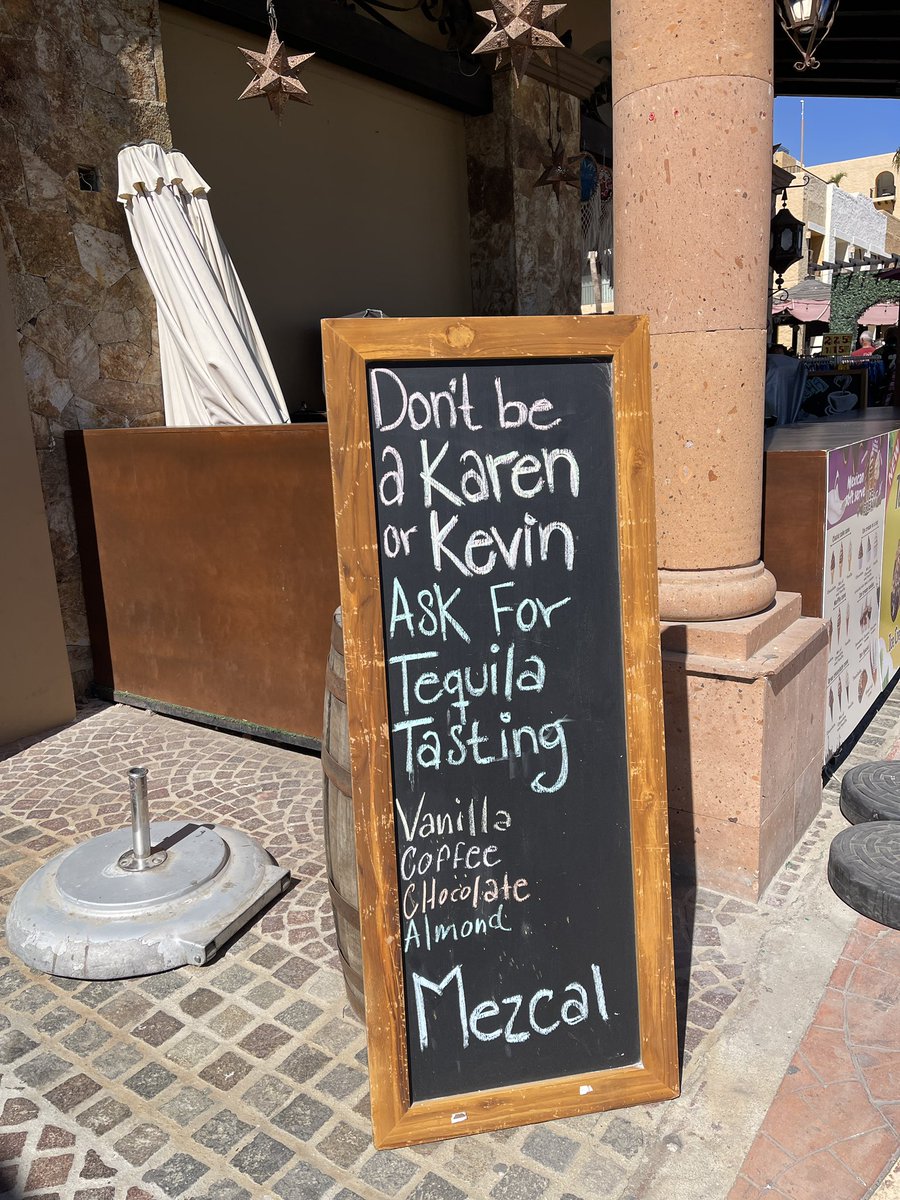 Don't be
a Karen
or Kevin
Ask For
Tequila
Tasting
Vanilla
Coffee
CHocolate
Almond
Mezcal
Mexican
soft serve